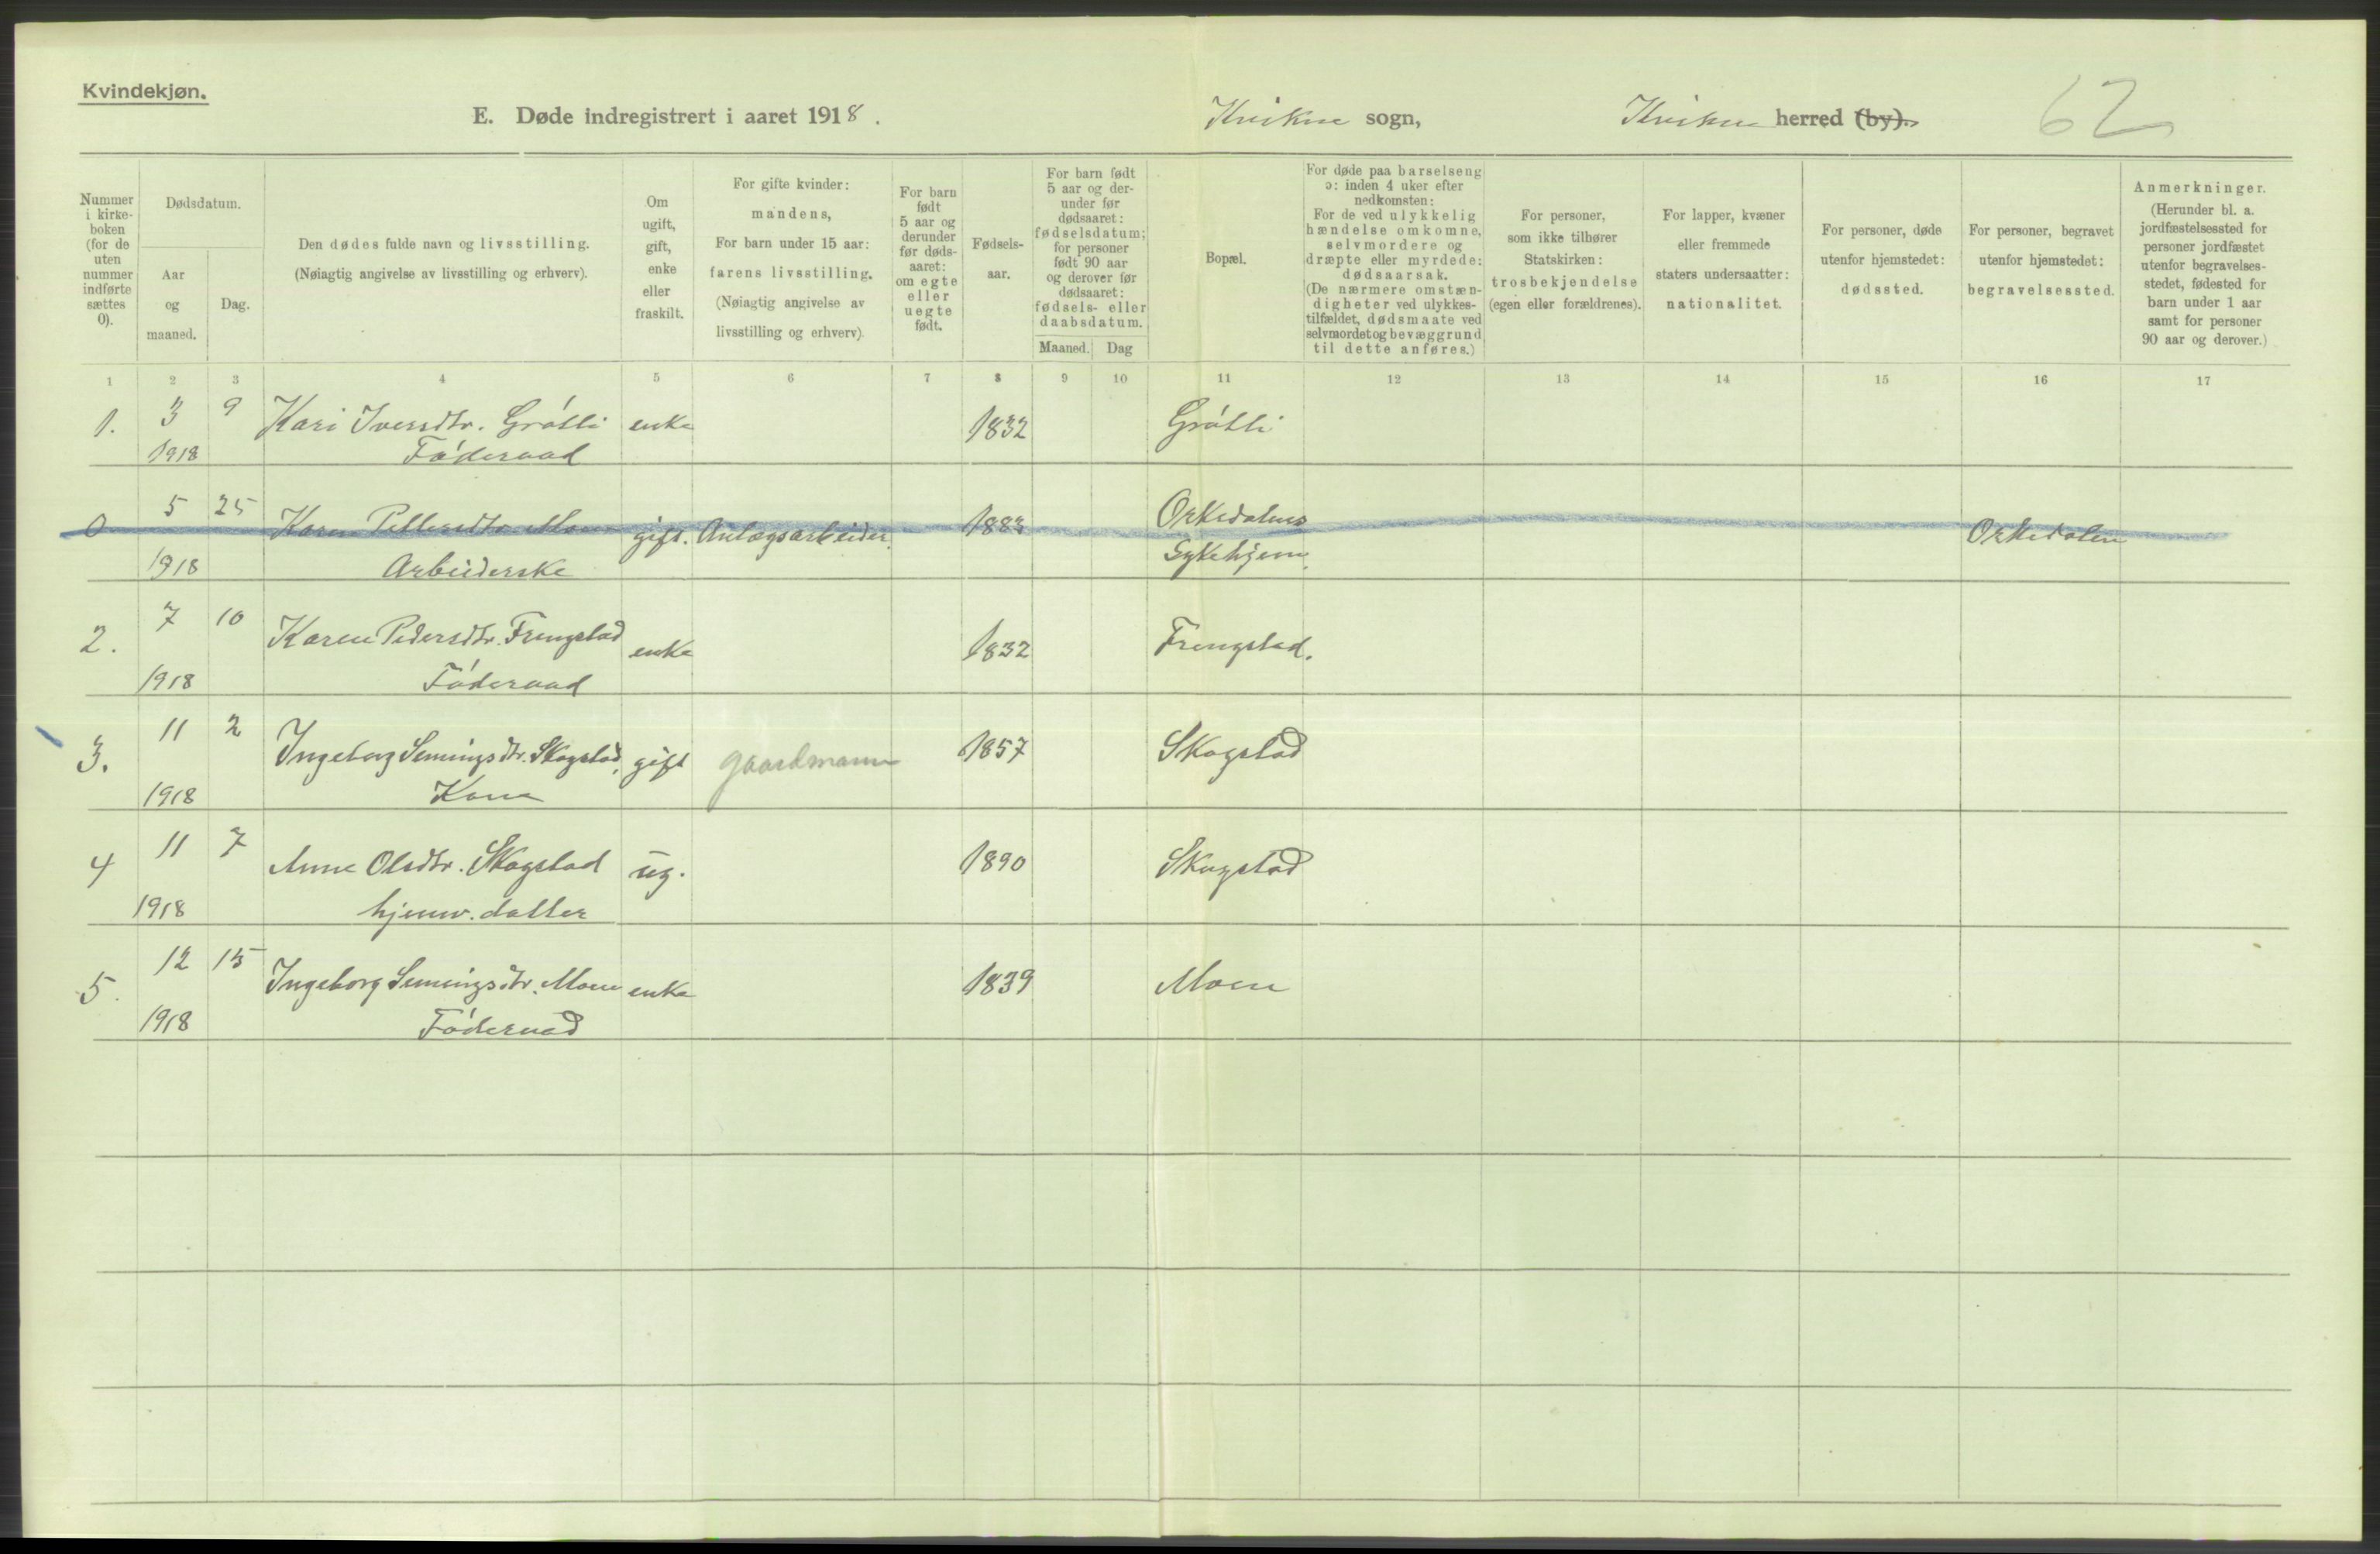 Kvindekjøn.
E. Døde indregistrert i aaret 1918. Kvikne sogn, Kvikne herred (by). 62
Nummer i kirke-boken (for de uten nummer indførte sættes 0).
Dødsdatum.
Aar og maaned.
Dag.
Den dødes fulde navn og livsstilling.
(Nøiagtig angivelse av livsstilling og erhverv).
Om ugift, gift, enke eller fraskilt.
For gifte kvinder: mandens,
For barn under 15 aar: farens livsstilling.
(Nøiagtig angivelse av livsstilling og erhverv).
For barn født 5 aar og derunder før døds-aaret: om egte eller uegte født.
Fødsels-aar.
For barn født 5 aar og der-under før dødsaaret: fødselsdatum; for personer født 90 aar og derover før dødsaaret: fødsels- eller daabsdatum.
Maaned. Dag
Bopæl.
For døde paa barselseng ɔ: inden 4 uker efter nedkomsten:
For de ved ulykkelig hændelse omkomne, selvmordere og dræpte eller myrdede: dødsaarsak.
(De nærmere omstæn-digheter ved ulykkes-tilfældet, dødsmaate ved selvmordet og bevæggrund til dette anføres.)
For personer, som ikke tilhører Statskirken: trosbekjendelse (egen eller forældrenes).
For lapper, kvæner eller fremmede staters undersaatter: nationalitet.
For personer, døde utenfor hjemstedet: dødssted.
For personer, begravet utenfor hjemstedet: begravelsessted.
Anmerkninger.
(Herunder bl. a. jordfæstelsessted for personer jordfæstet utenfor begravelses-stedet, fødested for barn under 1 aar samt for personer 90 aar og derover.)
1 2 3 4 5 6 7 8 9 10 11 12 13 14 15 16 17
1. 3 9 Kari Iversdtr. Grótli enke 1832 Grótli
1918 Fóderaad
0 5 25 Karen Pettersdtr. Moen gift. Anlægsarbeider. 1883 Orkedalens Orkedalen
1918 Arbeiderske Sykehjem.
2. 7 10 Karen Pedersdtr. Frengstad enke 1832 Frengstad.
1918 Fóderaad
3. 11 2 Ingeborg Semingsdtr. Skogstad, gift gaardmann 1857 Skogstad
1918 Kone
4 11 7 Anne Olsdtr. Skogstad ug. 1890 Skogstad
1918 hjemv. datter
5. 12 15 Ingeborg Semingsdtr. Moen enke 1839 Moen
1918 Fóderaad